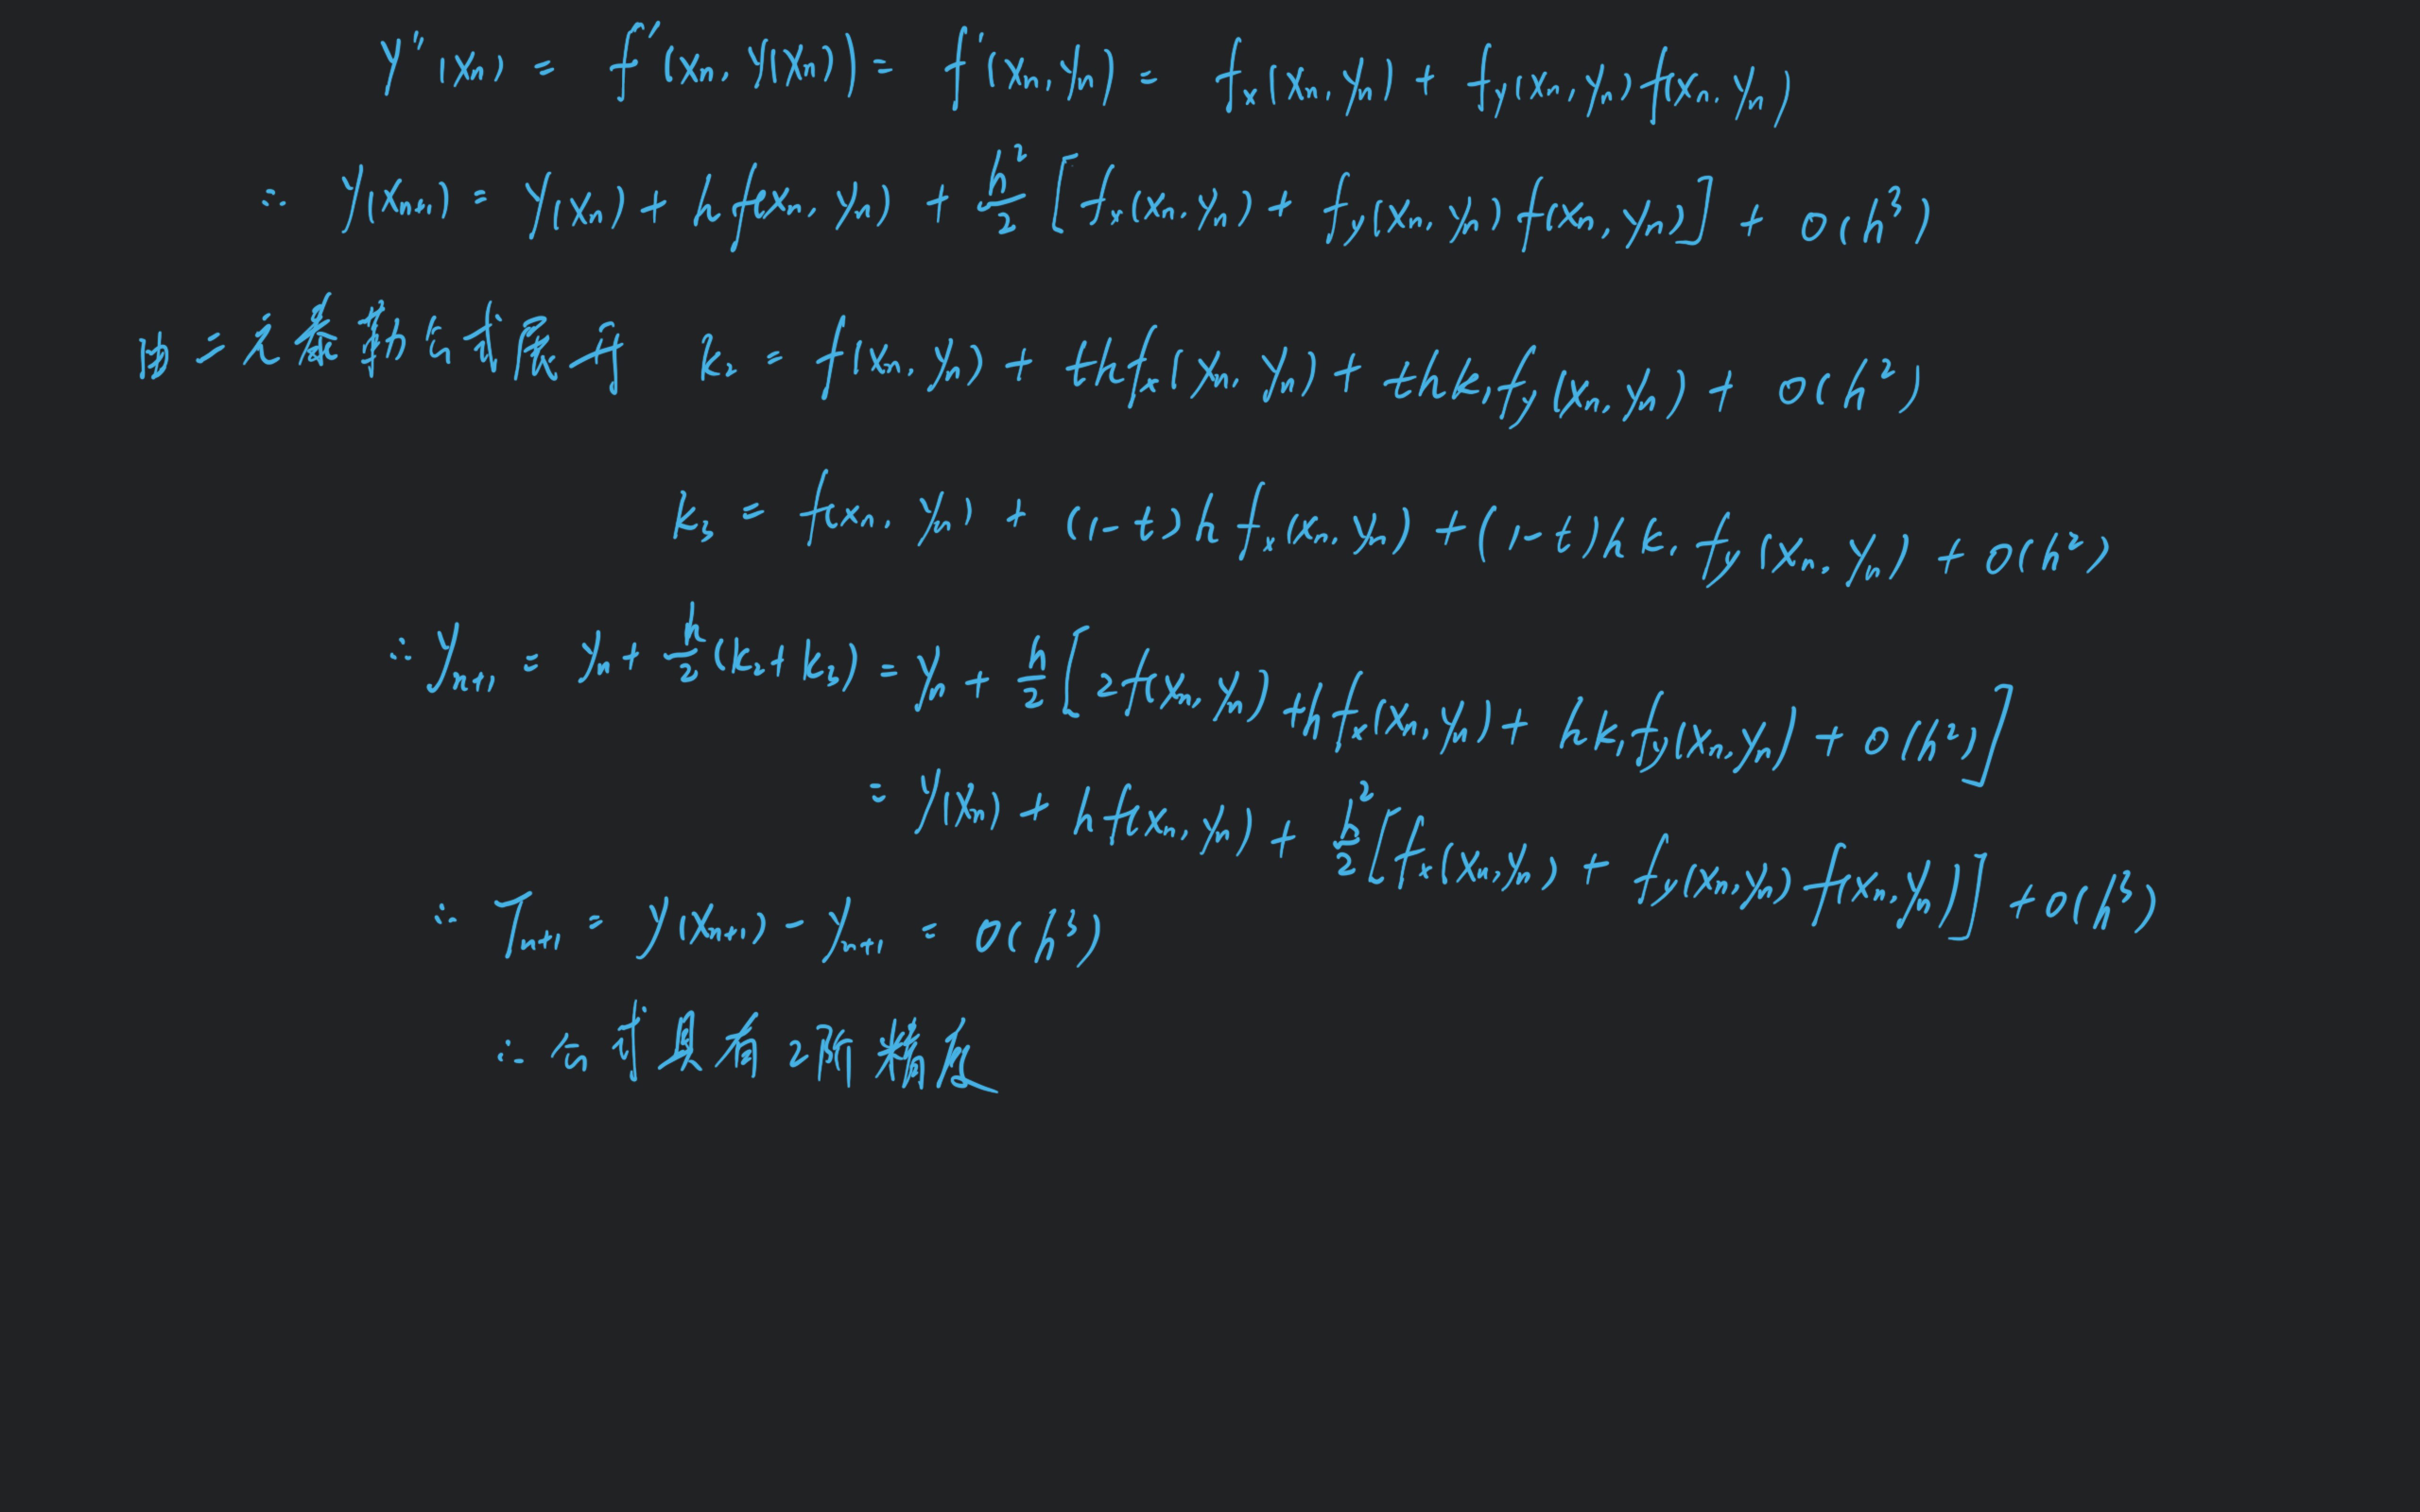 y''(xₙ) = f'(xₙ, y(xₙ)) = f'(xₙ, yₙ) = fₓ(xₙ, yₙ) + f_y(xₙ, yₙ) f(xₙ, yₙ)
∴ y(xₙ₊₁) = y(xₙ) + h f(xₙ, yₙ) + h²/2 [fₓ(xₙ, yₙ) + f_y(xₙ, yₙ) f(xₙ, yₙ)] + O(h³)
由二元泰勒公式展开 k₂ = f(xₙ, yₙ) + th fₓ(xₙ, yₙ) + thk₁ f_y(xₙ, yₙ) + O(h²)
k₃ = f(xₙ, yₙ) + (1-t)h fₓ(xₙ, yₙ) + (1-t)hk₁ f_y(xₙ, yₙ) + O(h²)
∴ yₙ₊₁ = yₙ + h/2 (k₂+k₃) = yₙ + h/2 [2f(xₙ, yₙ) + h fₓ(xₙ, yₙ) + hk₁ f_y(xₙ, yₙ) + O(h²)]
= y(xₙ) + h f(xₙ, yₙ) + h²/2 [fₓ(xₙ, yₙ) + f_y(xₙ, yₙ) f(xₙ, yₙ)] + O(h³)
∴ Tₙ₊₁ = y(xₙ₊₁) - yₙ₊₁ = O(h³)
∴ 公式具有2阶精度